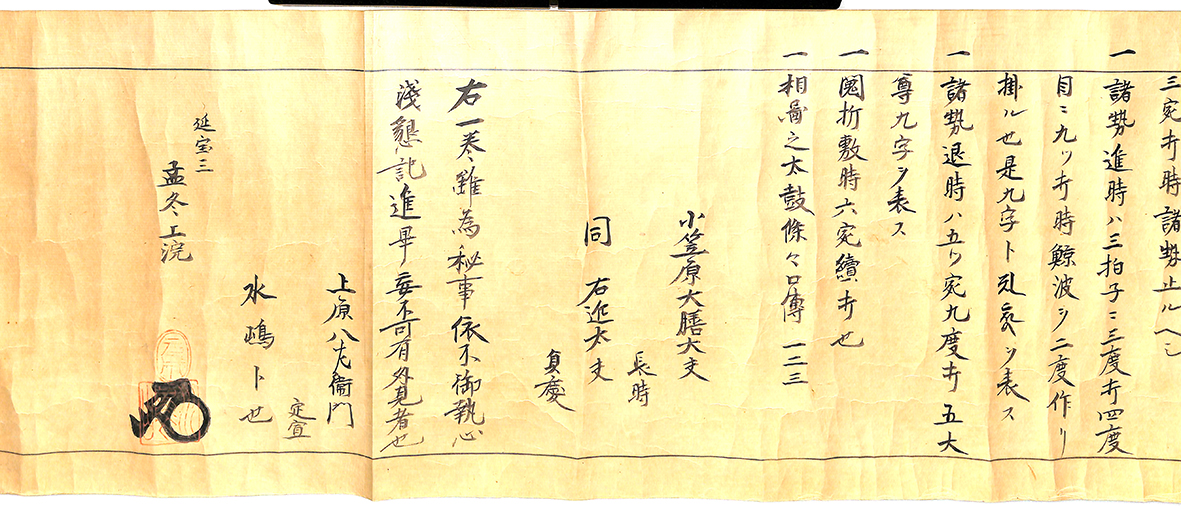 三宛打時諸勢止ルヘシ
一 諸勢進時ハ三拍子ニ三度打四度
目ニ九ツ打時鯨波ヲ二度作リ
掛ル也是九字ト ヲ表ス
一 諸勢退時ハ五ツ宛九度打五大
尊九字ヲ表ス
一 折敷時六宛續打也
一 相啚之太鼓條々口傳 一二三
小笠原大膳大夫
長時
同 右近太夫
貞慶
右一巻雖為秘事依不御執心
淺懇記進畢妄不可有外見者也
上原八左衛門
定宣
水嶋卜也
延宝三
孟冬上浣